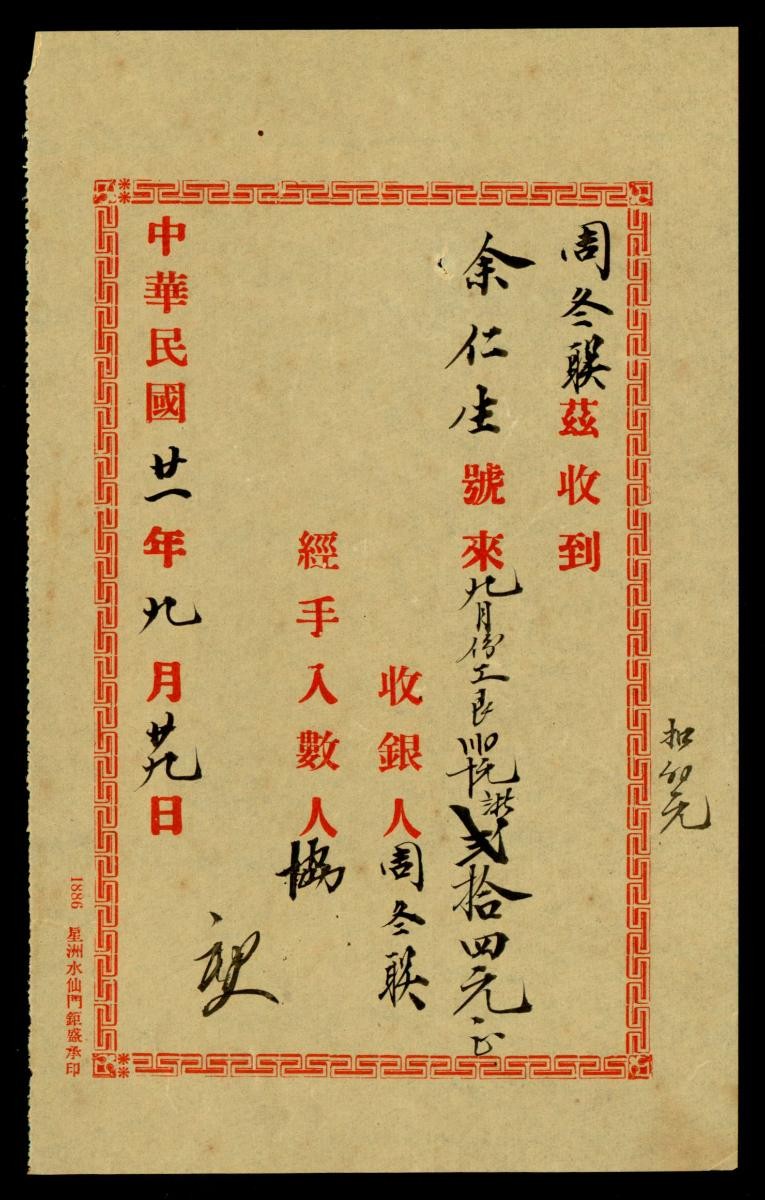 周冬联茲收到
余仁生號來九月份工艮 貳拾四元正
收銀人周冬联
經手入數人協
中華民國廿一年九月廿九日
扣 元
1886 星洲水仙門鉅盛承印